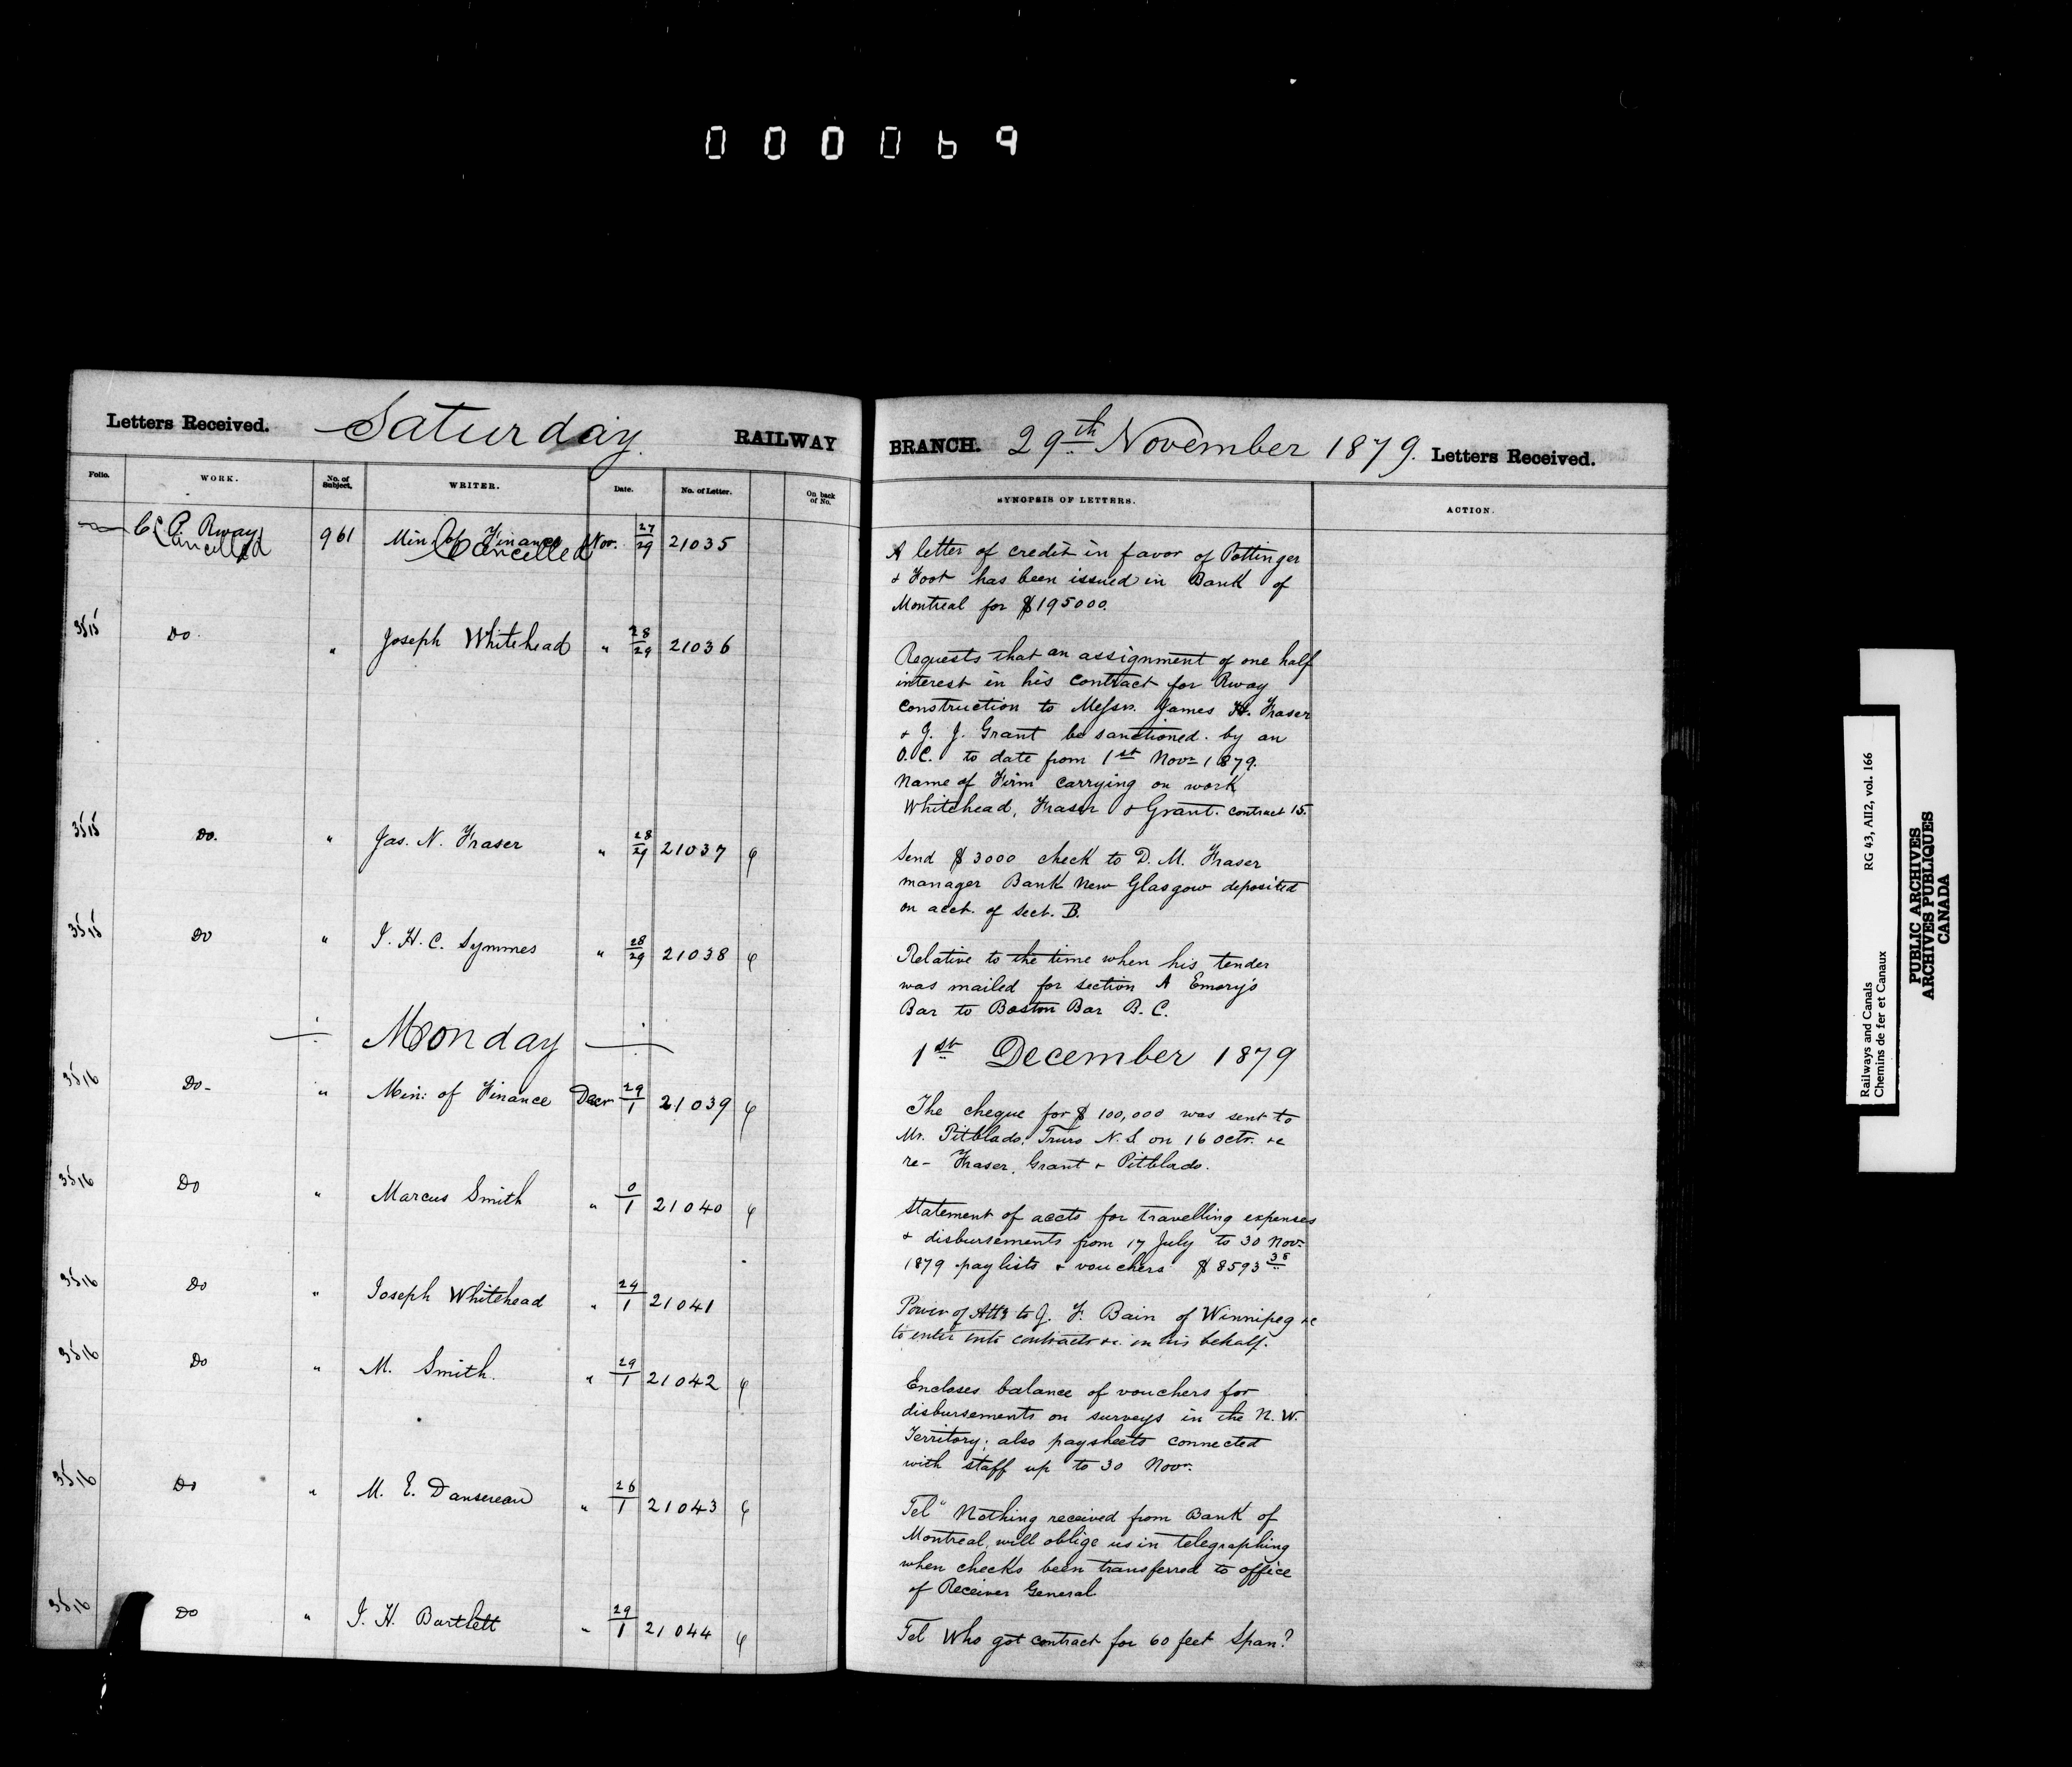 000069
Letters Received. Saturday. RAILWAY BRANCH. 29th November 1879. Letters Received.
Folio. WORK. No. of Subject. WRITER. Date. No. of Letter. On back of No. SYNOPSIS OF LETTERS. ACTION.
C. P. Rway 961 Min. of Finance Nov. 27/29 21035
Cancelled Cancelled
A letter of credit in favor of Pottinger
& Foot has been issued in Bank of
Montreal for $195000.
3515 Do. " Joseph Whitehead " 28/29 21036
Requests that an assignment of one half
interest in his contract for Rway
construction to Messrs. James H. Fraser
& G. J. Grant be sanctioned by an
O.C. to date from 1st Novr 1879.
Name of Firm carrying on work
Whitehead, Fraser & Grant. contract 15.
3515 Do. " Jas. N. Fraser " 28/29 21037
Send $3000 check to D. M. Fraser
manager Bank New Glasgow deposited
on acct. of Sect. B.
3515 Do " J. H. C. Symmes " 28/29 21038
Relative to the time when his tender
was mailed for section A Emory's
Bar to Boston Bar B. C.
Monday 1st December 1879
3516 Do- " Min: of Finance Decr 29/1 21039
The cheque for $100,000 was sent to
Mr. Pitblado, Truro N.S. on 16 Octr. &c
re- Fraser, Grant & Pitblado.
3516 Do " Marcus Smith " 0/1 21040
Statement of accts for travelling expenses
& disbursements from 17 July to 30 Novr
1879 pay lists & vouchers $8593 38
3516 Do " Joseph Whitehead " 24/1 21041
Power of Atty to J. F. Bain of Winnipeg &c
to enter into contracts &c. on his behalf.
3516 Do " M. Smith. " 29/1 21042
Encloses balance of vouchers for
disbursements on surveys in the N. W.
Territory; also paysheets connected
with staff up to 30 Novr.
3516 Do " M. E. Dansereau " 26/1 21043
Tel " Nothing received from Bank of
Montreal, will oblige us in telegraphing
when checks been transferred to office
of Receiver General
3516 Do " J. H. Bartlett " 29/1 21044
Tel Who got contract for 60 feet Span?
Railways and Canals RG 43, AII2, vol. 166
Chemins de fer et Canaux
PUBLIC ARCHIVES
ARCHIVES PUBLIQUES
CANADA